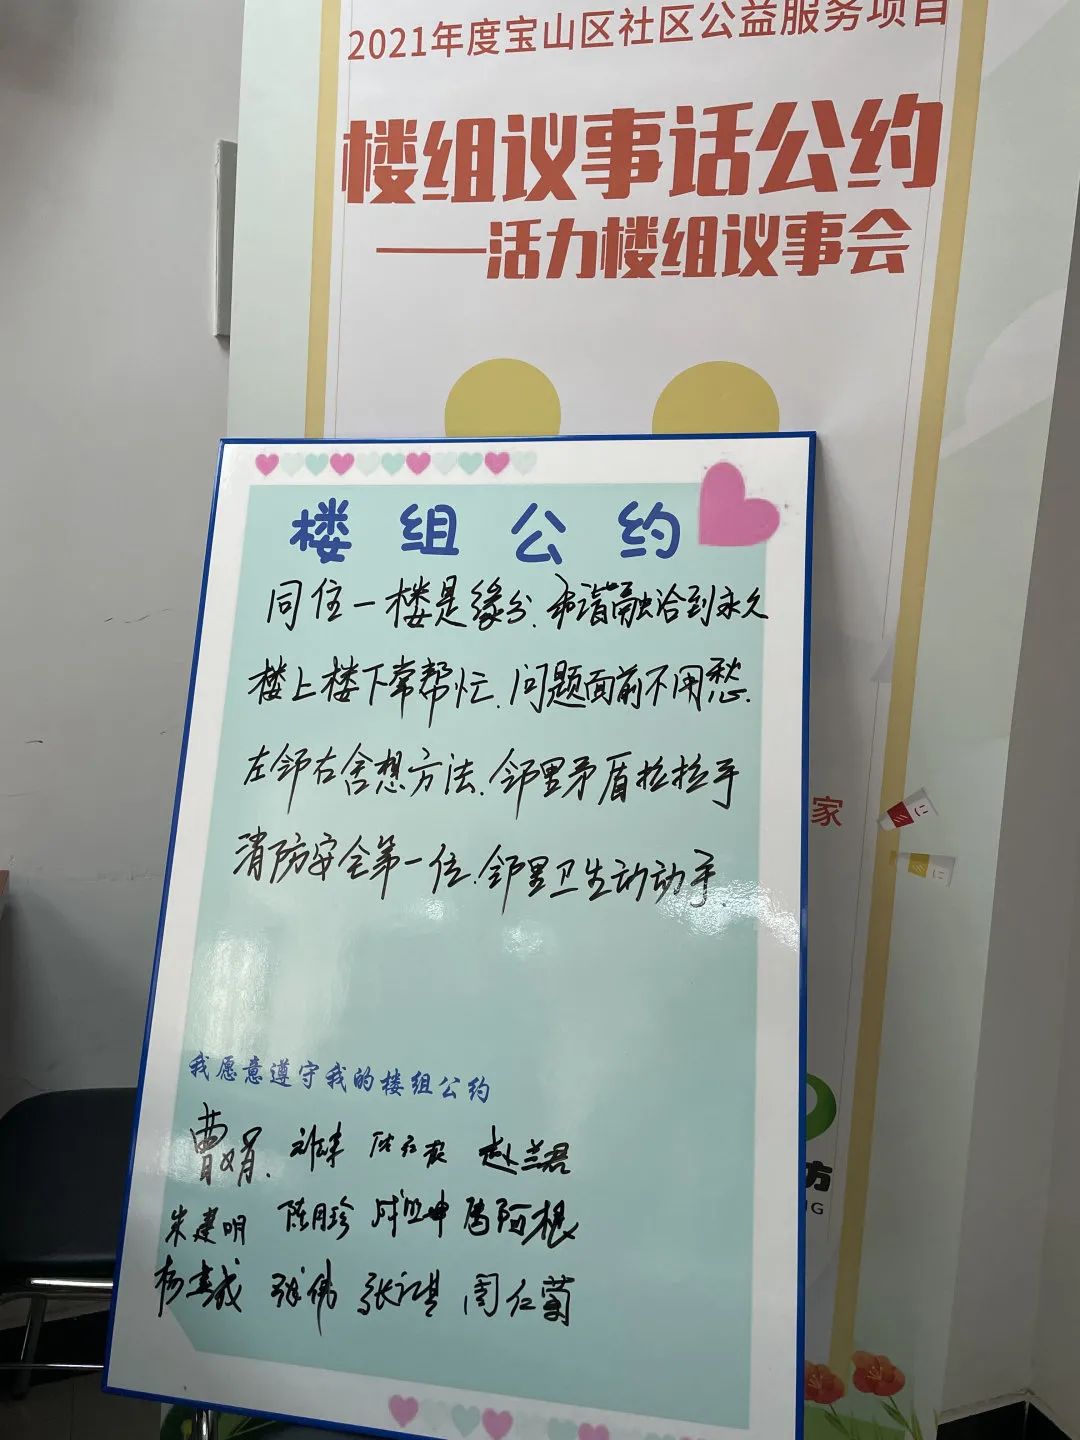 2021年度宝山区社区公益服务项目
楼组议事话公约
——活力楼组议事会
楼组公约
同住一楼是缘分.和谐融洽到永久
楼上楼下常帮忙.问题面前不用愁.
左邻右舍想方法.邻里矛盾拉拉手
消防安全第一位.邻里卫生动动手.
家
我愿意遵守我的楼组公约
曹娟. 赵兰君
朱建明 陈月珍 周阿根
张伟 周仁菊
方
NG